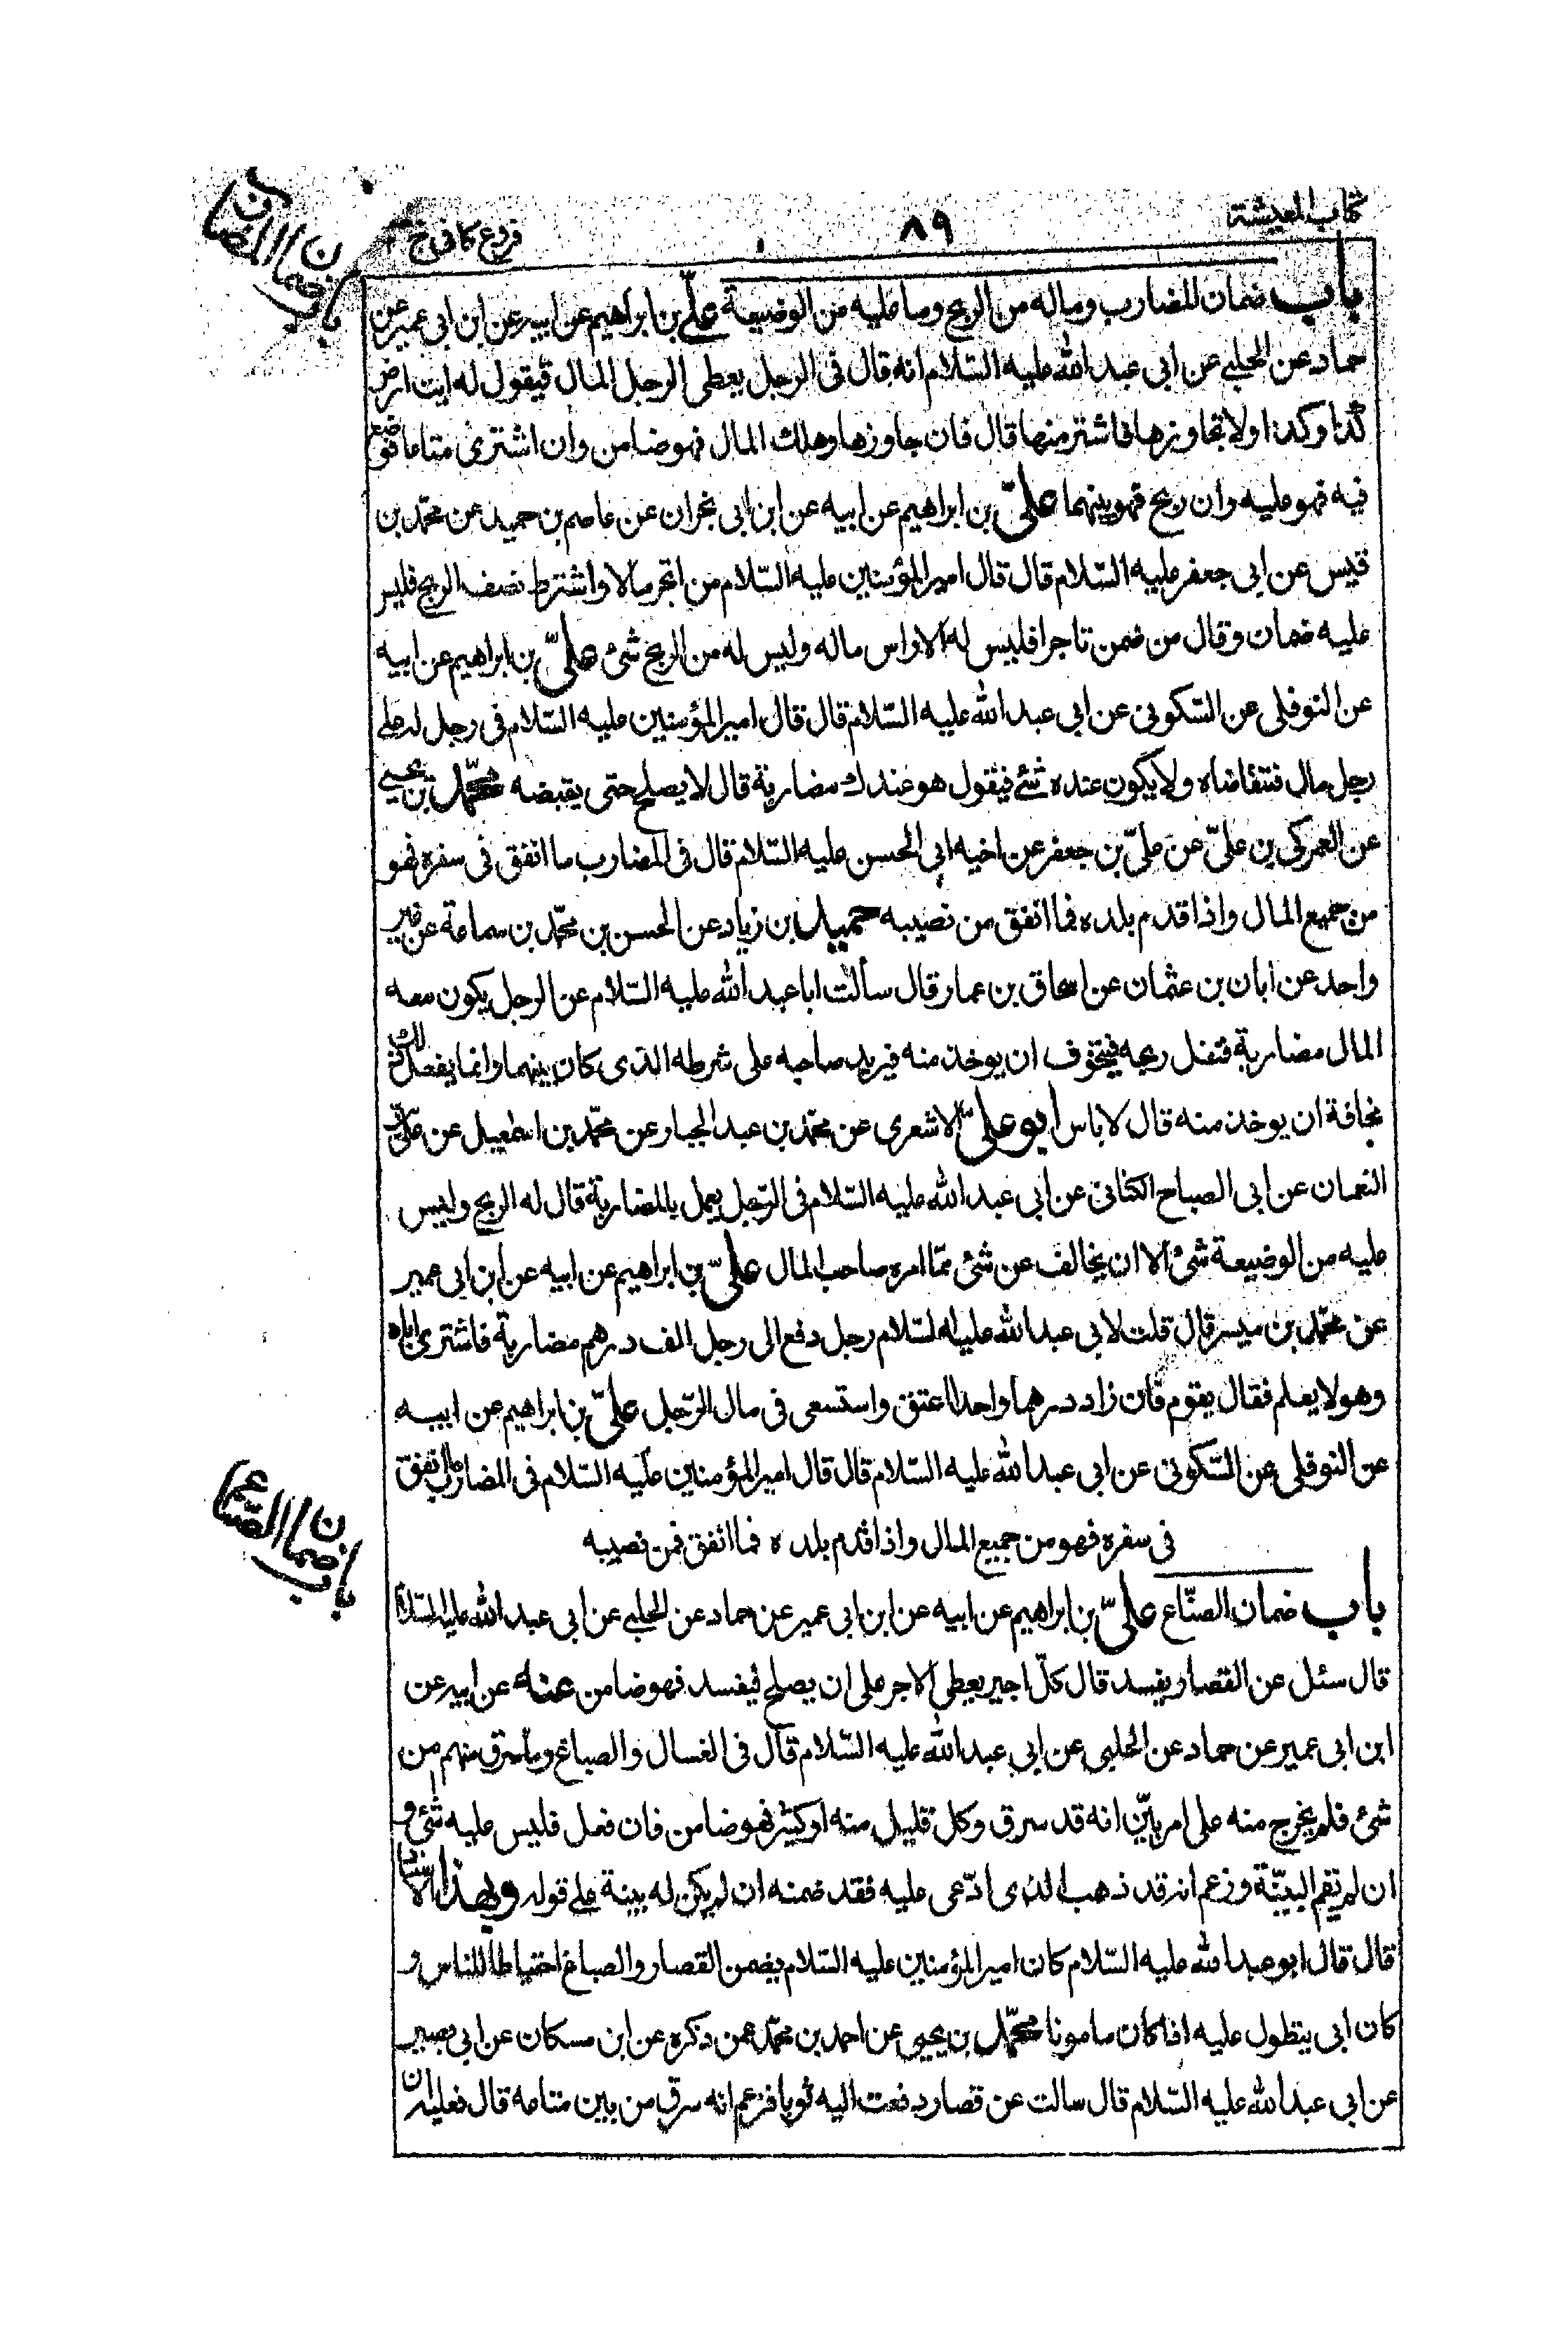 كتاب المعيشة
٨٩
فروع كافى ج
باب ضمان المضارب
باب ضمان المضارب وماله من الربح وما عليه من الوضيعة علىّ بن ابراهيم عن ابيه عن ابن ابى عمير عن
حماد عن الحلبى عن ابى عبد الله عليه السّلام انه قال فى الرجل يعطى الرجل المال فيقول له ايت ارض
كذا وكذا ولا تجاوزها فاشتر منها قال فان جاوزها وهلك المال فهو ضامن وان اشترى متاعا فوضع
فيه فهو عليه وان ربح فهو بينهما علىّ بن ابراهيم عن ابيه عن ابن ابى نجران عن عاصم بن حميد عن محمّد بن
قيس عن ابى جعفر عليه السّلام قال قال امير المؤمنين عليه السّلام من اتجر مالا واشترط نصف الربح فليس
عليه ضمان وقال من ضمن تاجرا فليس له الا راس ماله وليس له من الربح شئ علىّ بن ابراهيم عن ابيه
عن النوفلى عن السّكونى عن ابى عبد الله عليه السّلام قال قال امير المؤمنين عليه السّلام فى رجل له على
رجل مال فتقاضاه ولا يكون عنده شئ فيقول هو عندك مضاربة قال لا يصلح حتى يقبضه محمّد بن يحيى
عن العمركى بن علىّ عن علىّ بن جعفر عن اخيه ابى الحسن عليه السّلام قال فى المضارب ما انفق فى سفره فهو
من جميع المال واذا قدم بلده فما انفق من نصيبه حميد بن زياد عن الحسن بن محمّد بن سماعة عن غير
واحد عن ابان بن عثمان عن اسحاق بن عمار قال سألت ابا عبد الله عليه السّلام عن الرجل يكون معه
المال مضاربة فتقل ربحه فيتخوف ان يوخذ منه فيزيد صاحبه على شرطه الذى كان بينهما وانما يفعل ذلك
مخافة ان يوخذ منه قال لا باس ابو علىّ الاشعرى عن محمّد بن عبد الجبار عن محمّد بن اسمعيل عن علىّ بن
النعمان عن ابى الصباح الكنانى عن ابى عبد الله عليه السّلام فى الرّجل يعمل بالمضاربة قال له الربح وليس
عليه من الوضيعة شئ الا ان يخالف عن شئ ممّا امره صاحب المال علىّ بن ابراهيم عن ابيه عن ابن ابى عمير
عن محمّد بن ميسر قال قلت لابى عبد الله عليه السّلام رجل دفع الى رجل الف درهم مضاربة فاشترى اباه
وهو لا يعلم فقال يقوم فان زاد درهما واحدا اعتق واستسعى فى مال الرّجل علىّ بن ابراهيم عن ابيه
عن النوفلى عن السّكونى عن ابى عبد الله عليه السّلام قال قال امير المؤمنين عليه السّلام فى المضارب ما انفق
فى سفره فهو من جميع المال واذا قدم بلده فما انفق فمن نصيبه
باب ضمان الصّناع
باب ضمان الصنّاع علىّ بن ابراهيم عن ابيه عن ابن ابى عمير عن حماد عن الحلبى عن ابى عبد الله عليه السّلام
قال سئل عن القصار يفسد قال كلّ اجير يعطى الاجر على ان يصلح فيفسد فهو ضامن عنه عن ابيه عن
ابن ابى عمير عن حماد عن الحلبى عن ابى عبد الله عليه السّلام قال فى الغسال والصباغ وما سرق منهم من
شئ فلم يخرج منه على امر بيّن انه قد سرق وكل قليل منه او كثير فهو ضامن فان فعل فليس عليه شئ و
ان لم تقم البيّنة وزعم انه قد ذهب الذى ادّعى عليه فقد ضمنه ان لم يكن له بينة على قوله وبهذا الاسناد
قال قال ابو عبد الله عليه السّلام كان امير المؤمنين عليه السّلام يضمن القصار والصباغ احتياطا للناس و
كان ابى يتطول عليه اذا كان مامونا محمّد بن يحيى عن احمد بن محمّد عمن ذكره عن ابن مسكان عن ابى بصير
عن ابى عبد الله عليه السّلام قال سالت عن قصار دفعت اليه ثوبا فزعم انه سرق من بين متاعه قال فعليه ان